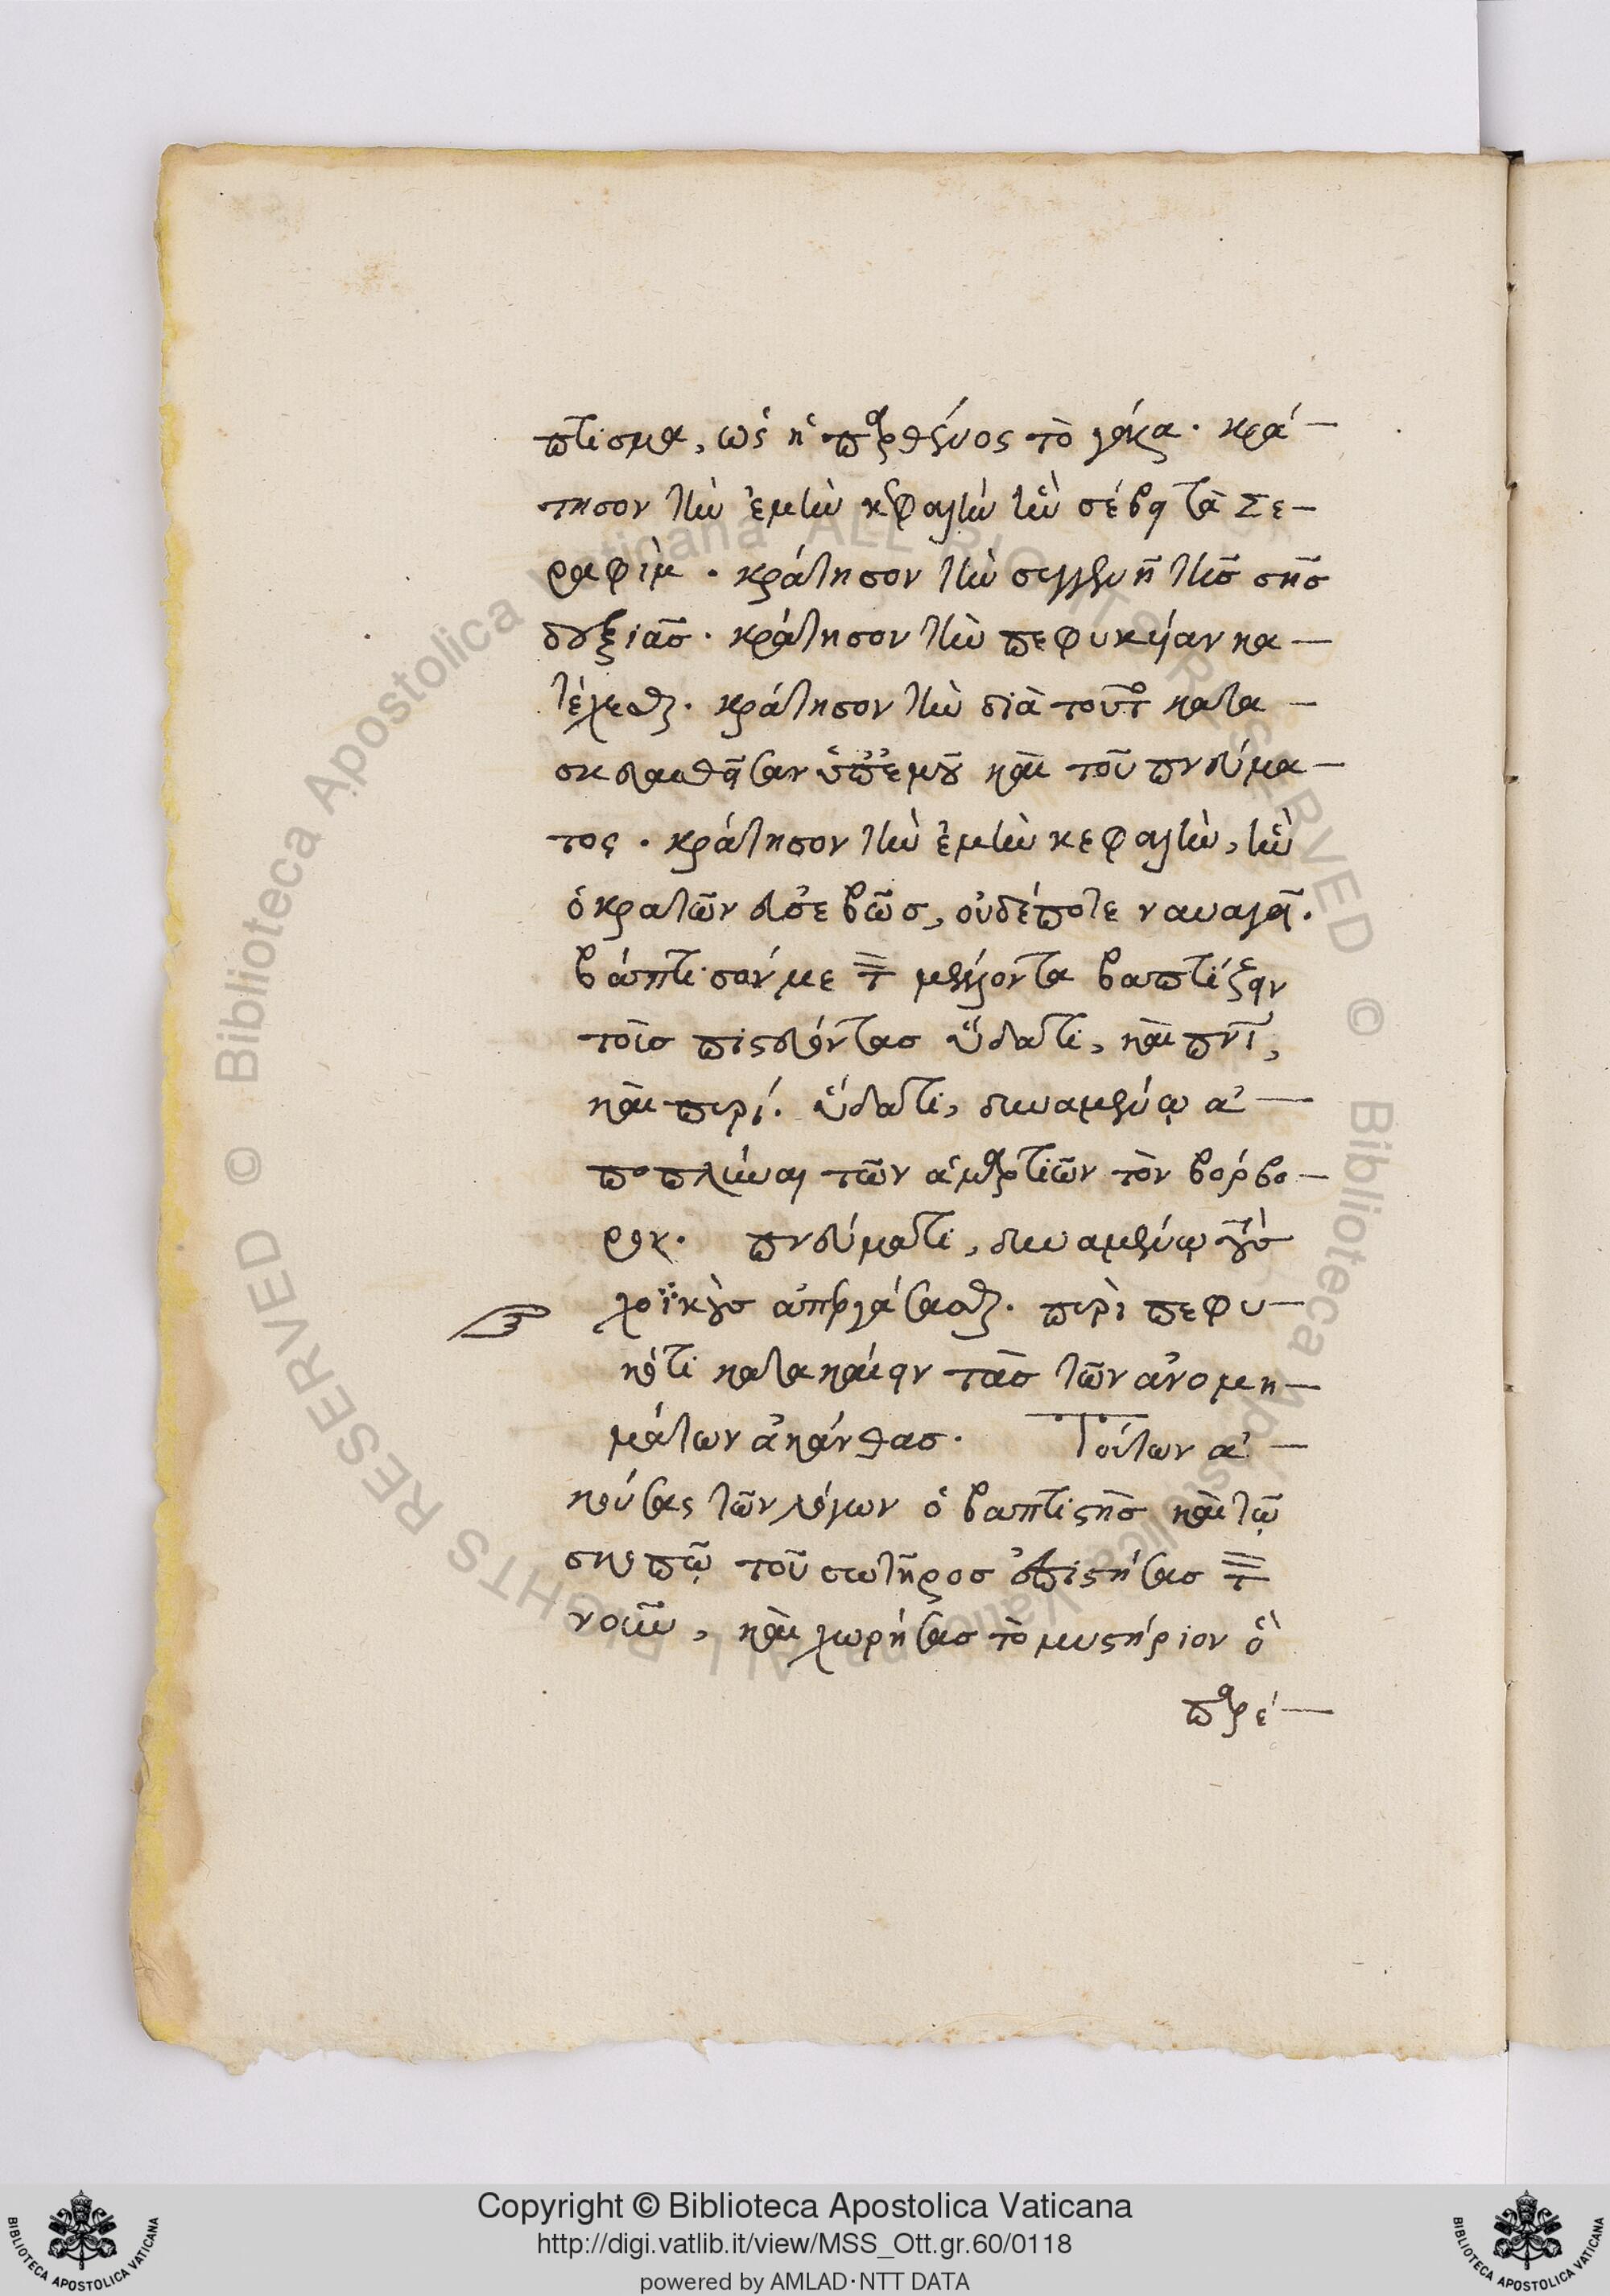 πτισμα, ὡς ἡ παρθένος τὸ γάλα. κρά-
τησον τὴν ἐμὴν κεφαλὴν ἣν σέβει τὰ Σε-
ραφὶμ. κράτησον τὴν συγγενῆ τῆς σῆς
δεξιᾶς. κράτησον τὴν πεφυκυίαν κα-
τέχεσθαι. κράτησον τὴν διὰ τοῦτο κατα-
σκευασθεῖσαν ὑπ' ἐμοῦ καὶ τοῦ πνεύμα-
τος. κράτησον τὴν ἐμὴν κεφαλὴν, ἣν
ὁ κρατῶν εὐσεβῶς, οὐδέποτε ναυαγεῖ.
βάπτισόν με τὸν μέλλοντα βαπτίζειν
τοὺς πιστεύοντας ὕδατι, καὶ πνι,
καὶ πυρί. ὕδατι, δυναμένῳ ἀ-
ποπλύναι τῶν ἁμαρτιῶν τὸν βόρβο-
ρον. πνεύματι, δυναμένῳ τοὺς
χοϊκοὺς ἀπεργάσασθαι. πυρὶ πεφυ-
κότι κατακαίειν τὰς τῶν ἀνομη-
μάτων ἀκάνθας. Τούτων ἀ-
κούσας τῶν λόγων ὁ βαπτιστὴς καὶ τῷ
σκοπῷ τοῦ σωτῆρος ἐπιστήσας τὸν
νοῦν, καὶ χωρήσας τὸ μυστήριον ὃ
παρέ-
Copyright © Biblioteca Apostolica Vaticana
http://digi.vatlib.it/view/MSS_Ott.gr.60/0118
powered by AMLAD·NTT DATA